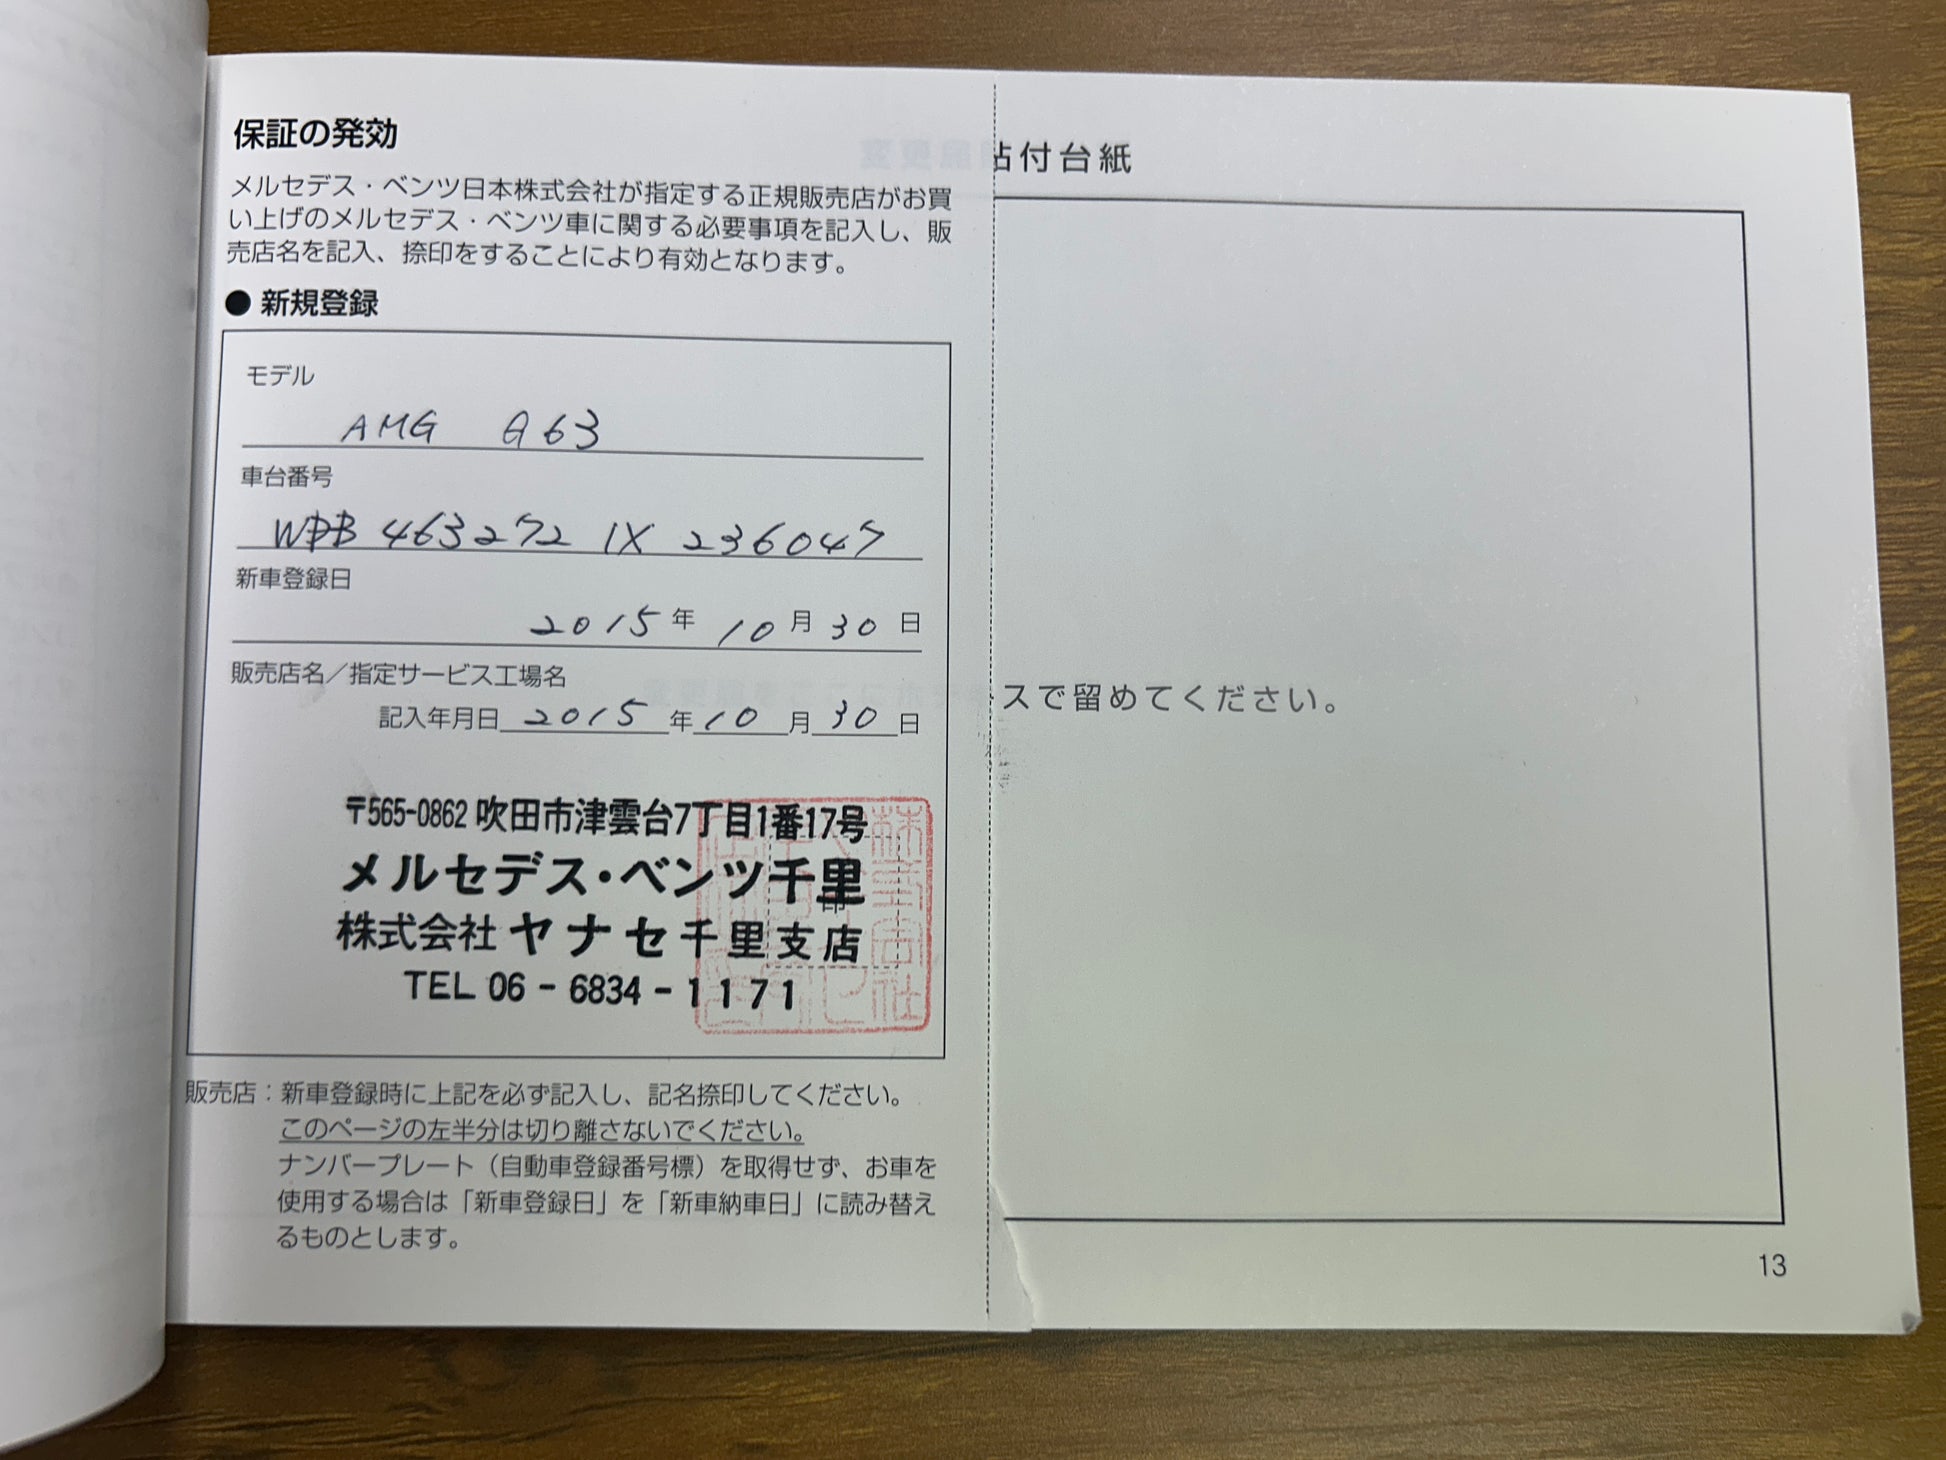 保証の発効
メルセデス・ベンツ日本株式会社が指定する正規販売店がお買
い上げのメルセデス・ベンツ車に関する必要事項を記入し、販
売店名を記入、捺印をすることにより有効となります。
● 新規登録
モデル
AMG G63
車台番号
WDB 463272 1X 236047
新車登録日
2015年 10月30日
販売店名／指定サービス工場名
記入年月日 2015年10月30日
〒565-0862 吹田市津雲台7丁目1番17号
メルセデス・ベンツ千里
印
株式会社ヤナセ千里支店
TEL 06-6834-1171
販売店：新車登録時に上記を必ず記入し、記名捺印してください。
このページの左半分は切り離さないでください。
ナンバープレート（自動車登録番号標）を取得せず、お車を
使用する場合は「新車登録日」を「新車納車日」に読み替え
るものとします。
付台紙
スで留めてください。
13